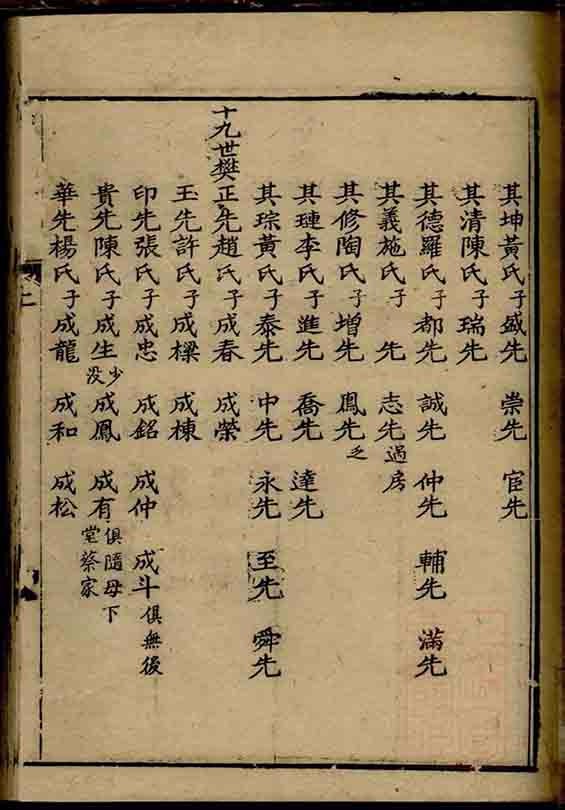 其坤黃氏子盛先 崇先 宦先
其清陳氏子瑞先
其德羅氏子都先 誠先 仲先 輔先 滿先
其義施氏子 先 志先過房
其修陶氏子增先 鳳先乏
其璉李氏子進先 喬先 達先
其琮黃氏子泰先 中先 永先 至先 舜先
十九世樊正先趙氏子成春 成榮
玉先許氏子成樑 成棟
印先張氏子成忠 成銘 成仲 成斗俱無後
貴先陳氏子成生少沒 成鳳 成有俱隨母下堂蔡家
華先楊氏子成龍 成和 成松
二